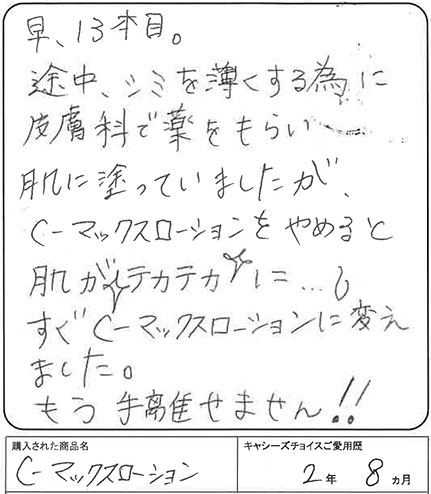 早、13本目。
途中、シミを薄くする為に
皮膚科で薬をもらい
肌に塗っていましたが、
C-マックスローションをやめると
肌がテカテカに…。
すぐC-マックスローションに変え
ました。
もう手離せません!!
購入された商品名
C-マックスローション
キャシーズチョイスご愛用歴
2年 8ヵ月